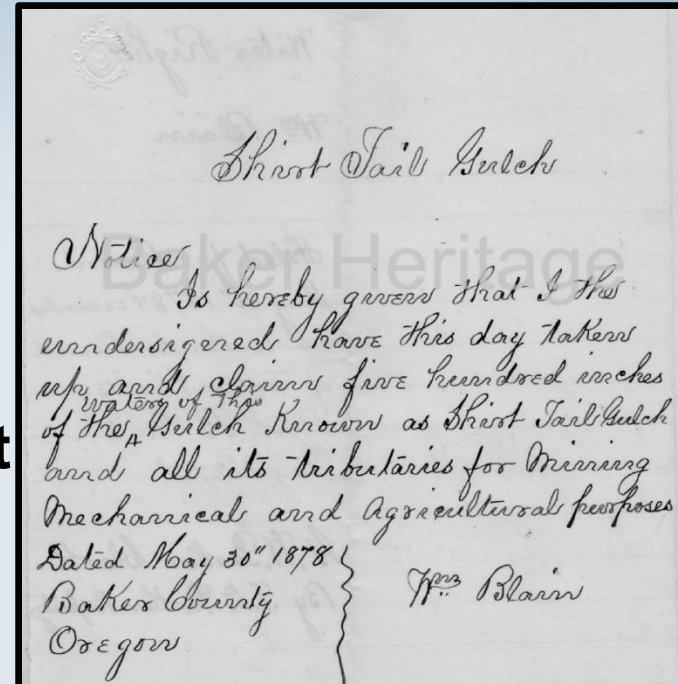 Shirt Tail Gulch
Baker Heritage
Notice
Is hereby given that I the
undersigned have this day taken
up and claim five hundred inches
waters of The
of the ‸ Gulch Known as Shirt Tail Gulch
and all its tributaries for Mining
Mechanical and Agricultural purposes
Dated May 30" 1878
Baker County
Oregon
Wm Blain
t